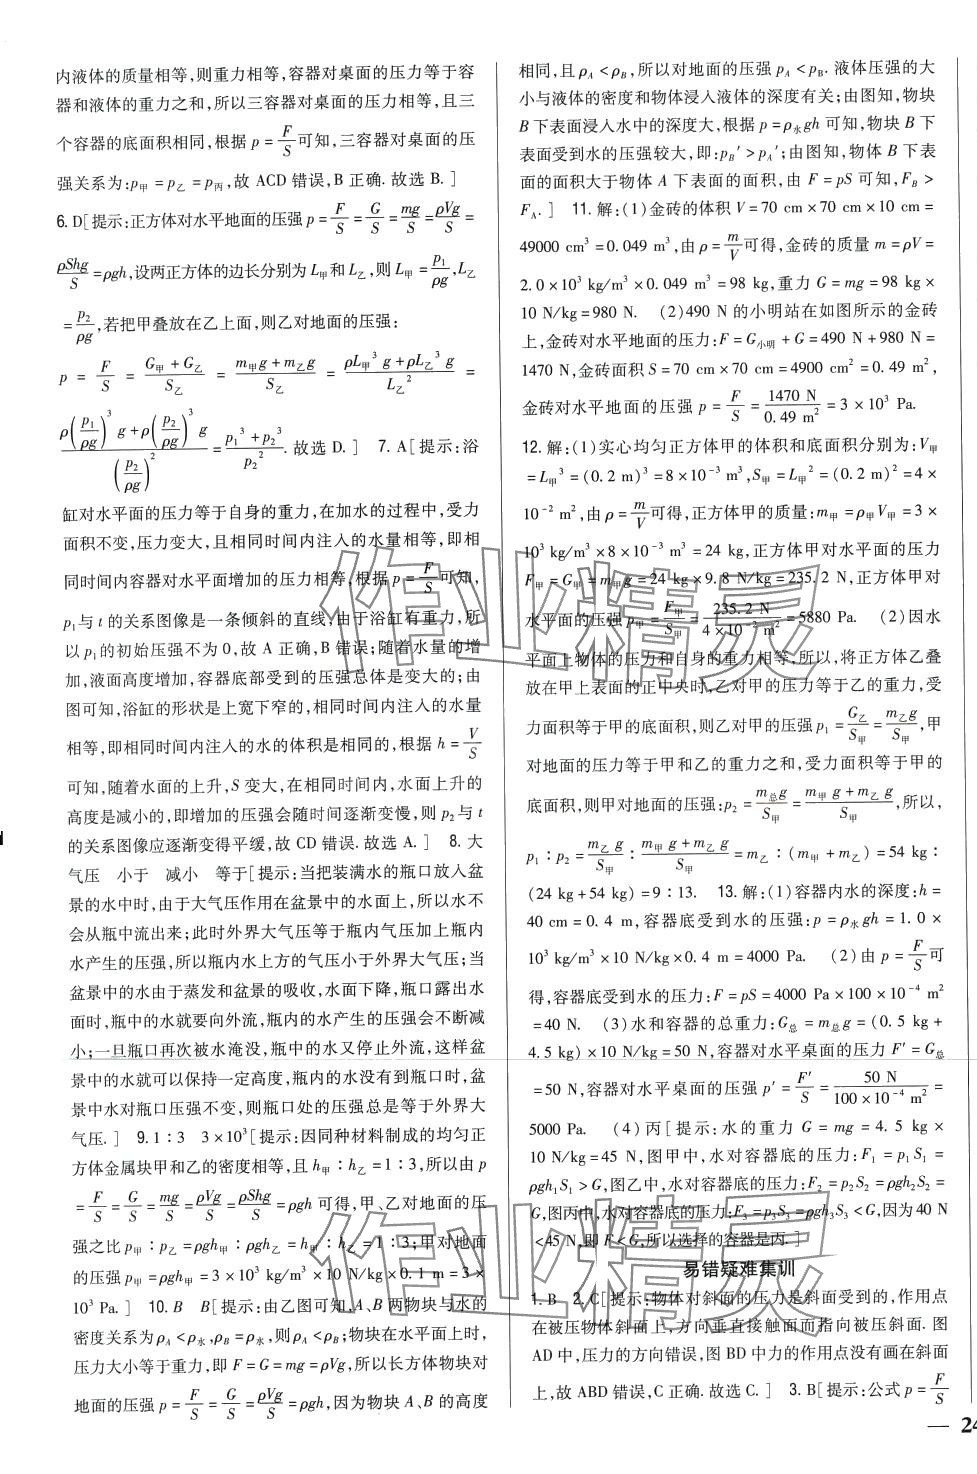 内液体的质量相等,则重力相等,容器对桌面的压力等于容
器和液体的重力之和,所以三容器对桌面的压力相等,且三
个容器的底面积相同,根据 p=F/S可知,三容器对桌面的压
强关系为:p甲=p乙=p丙,故 ACD 错误,B 正确.故选 B.]
6. D[提示:正方体对水平地面的压强 p=F/S=G/S=mg/S=ρVg/S=
ρShg/S=ρgh,设两正方体的边长分别为 L甲和 L乙,则 L甲=p₁/ρg,L乙
=p₂/ρg,若把甲叠放在乙上面,则乙对地面的压强:
p = F/S = (G甲+G乙)/S乙 = (m甲g+m乙g)/S乙 = (ρL甲³g+ρL乙³g)/L乙² =
(ρ(p₁/ρg)³g+ρ(p₂/ρg)³g)/(p₂/ρg)²=(p₁³+p₂³)/p₂².故选 D.] 7. A[提示:浴
缸对水平面的压力等于自身的重力,在加水的过程中,受力
面积不变,压力变大,且相同时间内注入的水量相等,即相
同时间内容器对水平面增加的压力相等,根据 p=F/S可知,
p₁与 t 的关系图像是一条倾斜的直线;由于浴缸有重力,所
以 p₁的初始压强不为 0,故 A 正确,B 错误;随着水量的增
加,液面高度增加,容器底部受到的压强总体是变大的;由
图可知,浴缸的形状是上宽下窄的,相同时间内注入的水量
相等,即相同时间内注入的水的体积是相同的,根据 h=V/S
可知,随着水面的上升,S 变大,在相同时间内,水面上升的
高度是减小的,即增加的压强会随时间逐渐变慢,则 p₂与 t
的关系图像应逐渐变得平缓,故 CD 错误.故选 A.] 8. 大
气压 小于 减小 等于[提示:当把装满水的瓶口放入盆
景的水中时,由于大气压作用在盆景中的水面上,所以水不
会从瓶中流出来;此时外界大气压等于瓶内气压加上瓶内
水产生的压强,所以瓶内水上方的气压小于外界大气压;当
盆景中的水由于蒸发和盆景的吸收,水面下降,瓶口露出水
面时,瓶中的水就要向外流,瓶内的水产生的压强会不断减
小;一旦瓶口再次被水淹没,瓶中的水又停止外流,这样盆
景中的水就可以保持一定高度,瓶内的水没有到瓶口时,盆
景中水对瓶口压强不变,则瓶口处的压强总是等于外界大
气压.] 9. 1∶3 3×10³[提示:因同种材料制成的均匀正
方体金属块甲和乙的密度相等,且 h甲∶h乙=1∶3,所以由 p
=F/S=G/S=mg/S=ρVg/S=ρShg/S=ρgh 可得,甲、乙对地面的压
强之比 p甲∶p乙=ρgh甲∶ρgh乙=h甲∶h乙=1∶3;甲对地面
的压强 p甲=ρgh甲=3×10³ kg/m³×10 N/kg×0.1 m=3×
10³ Pa.] 10. B B[提示:由乙图可知,A、B 两物块与水的
密度关系为 ρA<ρ水,ρB=ρ水,则ρA<ρB;物块在水平面上时,
压力大小等于重力,即 F=G=mg=ρVg,所以长方体物块对
地面的压强 p=F/S=G/S=ρVg/S=ρgh,因为物块 A、B 的高度
相同,且 ρA<ρB,所以对地面的压强 pA<pB.液体压强的大
小与液体的密度和物体浸入液体的深度有关;由图知,物块
B 下表面浸入水中的深度大,根据 p=ρ水gh 可知,物块 B 下
表面受到水的压强较大,即:pB′>pA′;由图知,物体 B 下表
面的面积大于物体 A 下表面的面积,由 F=pS 可知,FB>
FA.] 11. 解:(1)金砖的体积 V=70 cm×70 cm×10 cm=
49000 cm³=0.049 m³,由 ρ=m/V可得,金砖的质量 m=ρV=
2.0×10³ kg/m³×0.049 m³=98 kg,重力 G=mg=98 kg×
10 N/kg=980 N. (2)490 N 的小明站在如图所示的金砖
上,金砖对地面的压力:F=G小明+G=490 N+980 N=
1470 N,金砖面积 S=70 cm×70 cm=4900 cm²=0.49 m²,
金砖对水平地面的压强 p=F/S=1470 N/0.49 m²=3×10³ Pa.
12. 解:(1)实心均匀正方体甲的体积和底面积分别为:V甲
=L甲³=(0.2 m)³=8×10⁻³ m³,S甲=L甲²=(0.2 m)²=4×
10⁻² m²,由 ρ=m/V可得,正方体甲的质量:m甲=ρ甲V甲=3×
10³ kg/m³×8×10⁻³ m³=24 kg,正方体甲对水平面的压力
F甲=G甲=m甲g=24 kg×9.8 N/kg=235.2 N,正方体甲对
水平面的压强 p甲=F甲/S甲=235.2 N/4×10⁻² m²=5880 Pa. (2)因水
平面上物体的压力和自身的重力相等,所以,将正方体乙叠
放在甲上表面的正中央时,乙对甲的压力等于乙的重力,受
力面积等于甲的底面积,则乙对甲的压强 p₁=G乙/S甲=m乙g/S甲,甲
对地面的压力等于甲和乙的重力之和,受力面积等于甲的
底面积,则甲对地面的压强:p₂=m总g/S甲=(m甲g+m乙g)/S甲,所以,
p₁∶p₂=m乙g/S甲∶(m甲g+m乙g)/S甲=m乙∶(m甲+m乙)=54 kg∶
(24 kg+54 kg)=9∶13. 13. 解:(1)容器内水的深度:h=
40 cm=0.4 m,容器底受到水的压强:p=ρ水gh=1.0×
10³ kg/m³×10 N/kg×0.4 m=4000 Pa. (2)由 p=F/S可
得,容器底受到水的压力:F=pS=4000 Pa×100×10⁻⁴ m²
=40 N. (3)水和容器的总重力:G总=m总g=(0.5 kg+
4.5 kg)×10 N/kg=50 N,容器对水平桌面的压力 F′=G总
=50 N,容器对水平桌面的压强 p′=F′/S=50 N/100×10⁻⁴ m²=
5000 Pa. (4)丙[提示:水的重力 G=mg=4.5 kg×
10 N/kg=45 N,图甲中,水对容器底的压力:F₁=p₁S₁=
ρgh₁S₁>G,图乙中,水对容器底的压力:F₂=p₂S₂=ρgh₂S₂=
G,图丙中,水对容器底的压力:F₃=p₃S₃=ρgh₃S₃<G,因为 40 N
<45 N,即 F<G,所以选择的容器是丙.]
易错疑难集训
1. B 2. C[提示:物体对斜面的压力是斜面受到的,作用点
在被压物体斜面上,方向垂直接触面而指向被压斜面.图
AD 中,压力的方向错误,图 BD 中力的作用点没有画在斜面
上,故 ABD 错误,C 正确.故选 C.] 3. B[提示:公式 p=F/S
— 24
作业精灵
作业精灵